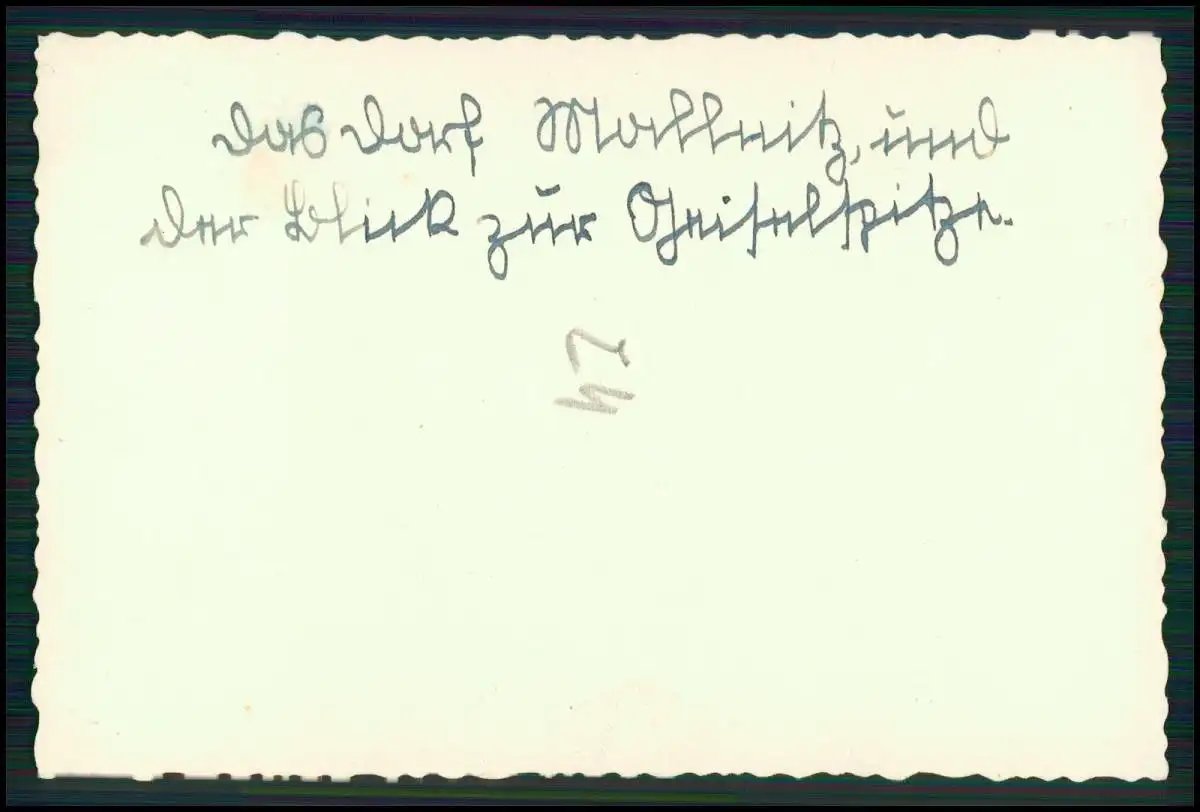 Das Dorf Mallnitz, und
der Blick zur Geiselspitze.